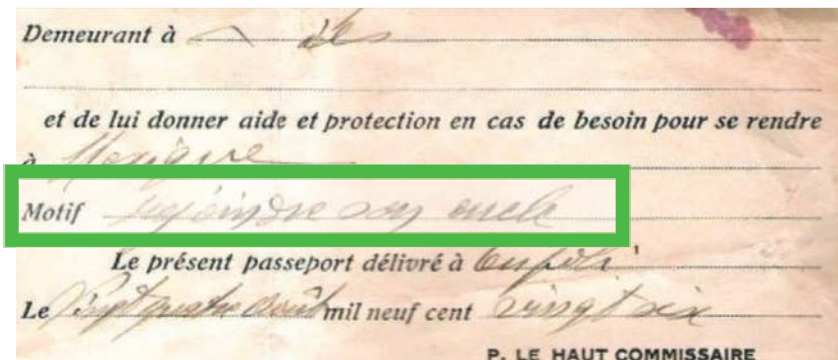 Demeurant à
et de lui donner aide et protection en cas de besoin pour se rendre
à Mexique
Motif rejoindre son oncle
Le présent passeport délivré à
Le Vingt quatre Août mil neuf cent vingt six
P. LE HAUT COMMISSAIRE